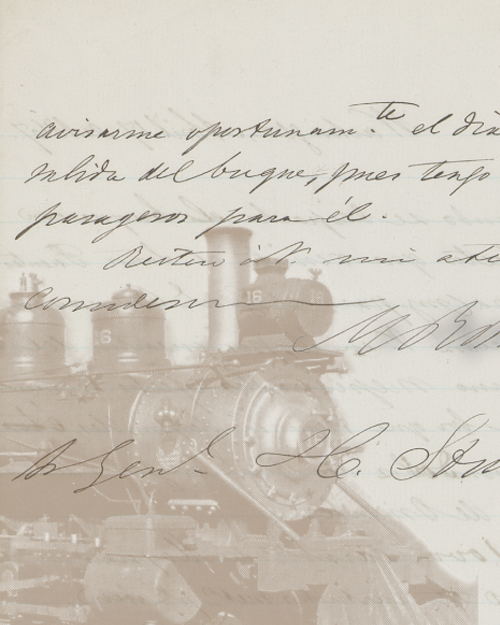 avisarme oportunam.te el día
salida del buque, pues tengo
pasageros para él.
Reitero á V. mi ate
consideron
M Ro
Sr Genl. H. Stu
16
16
16